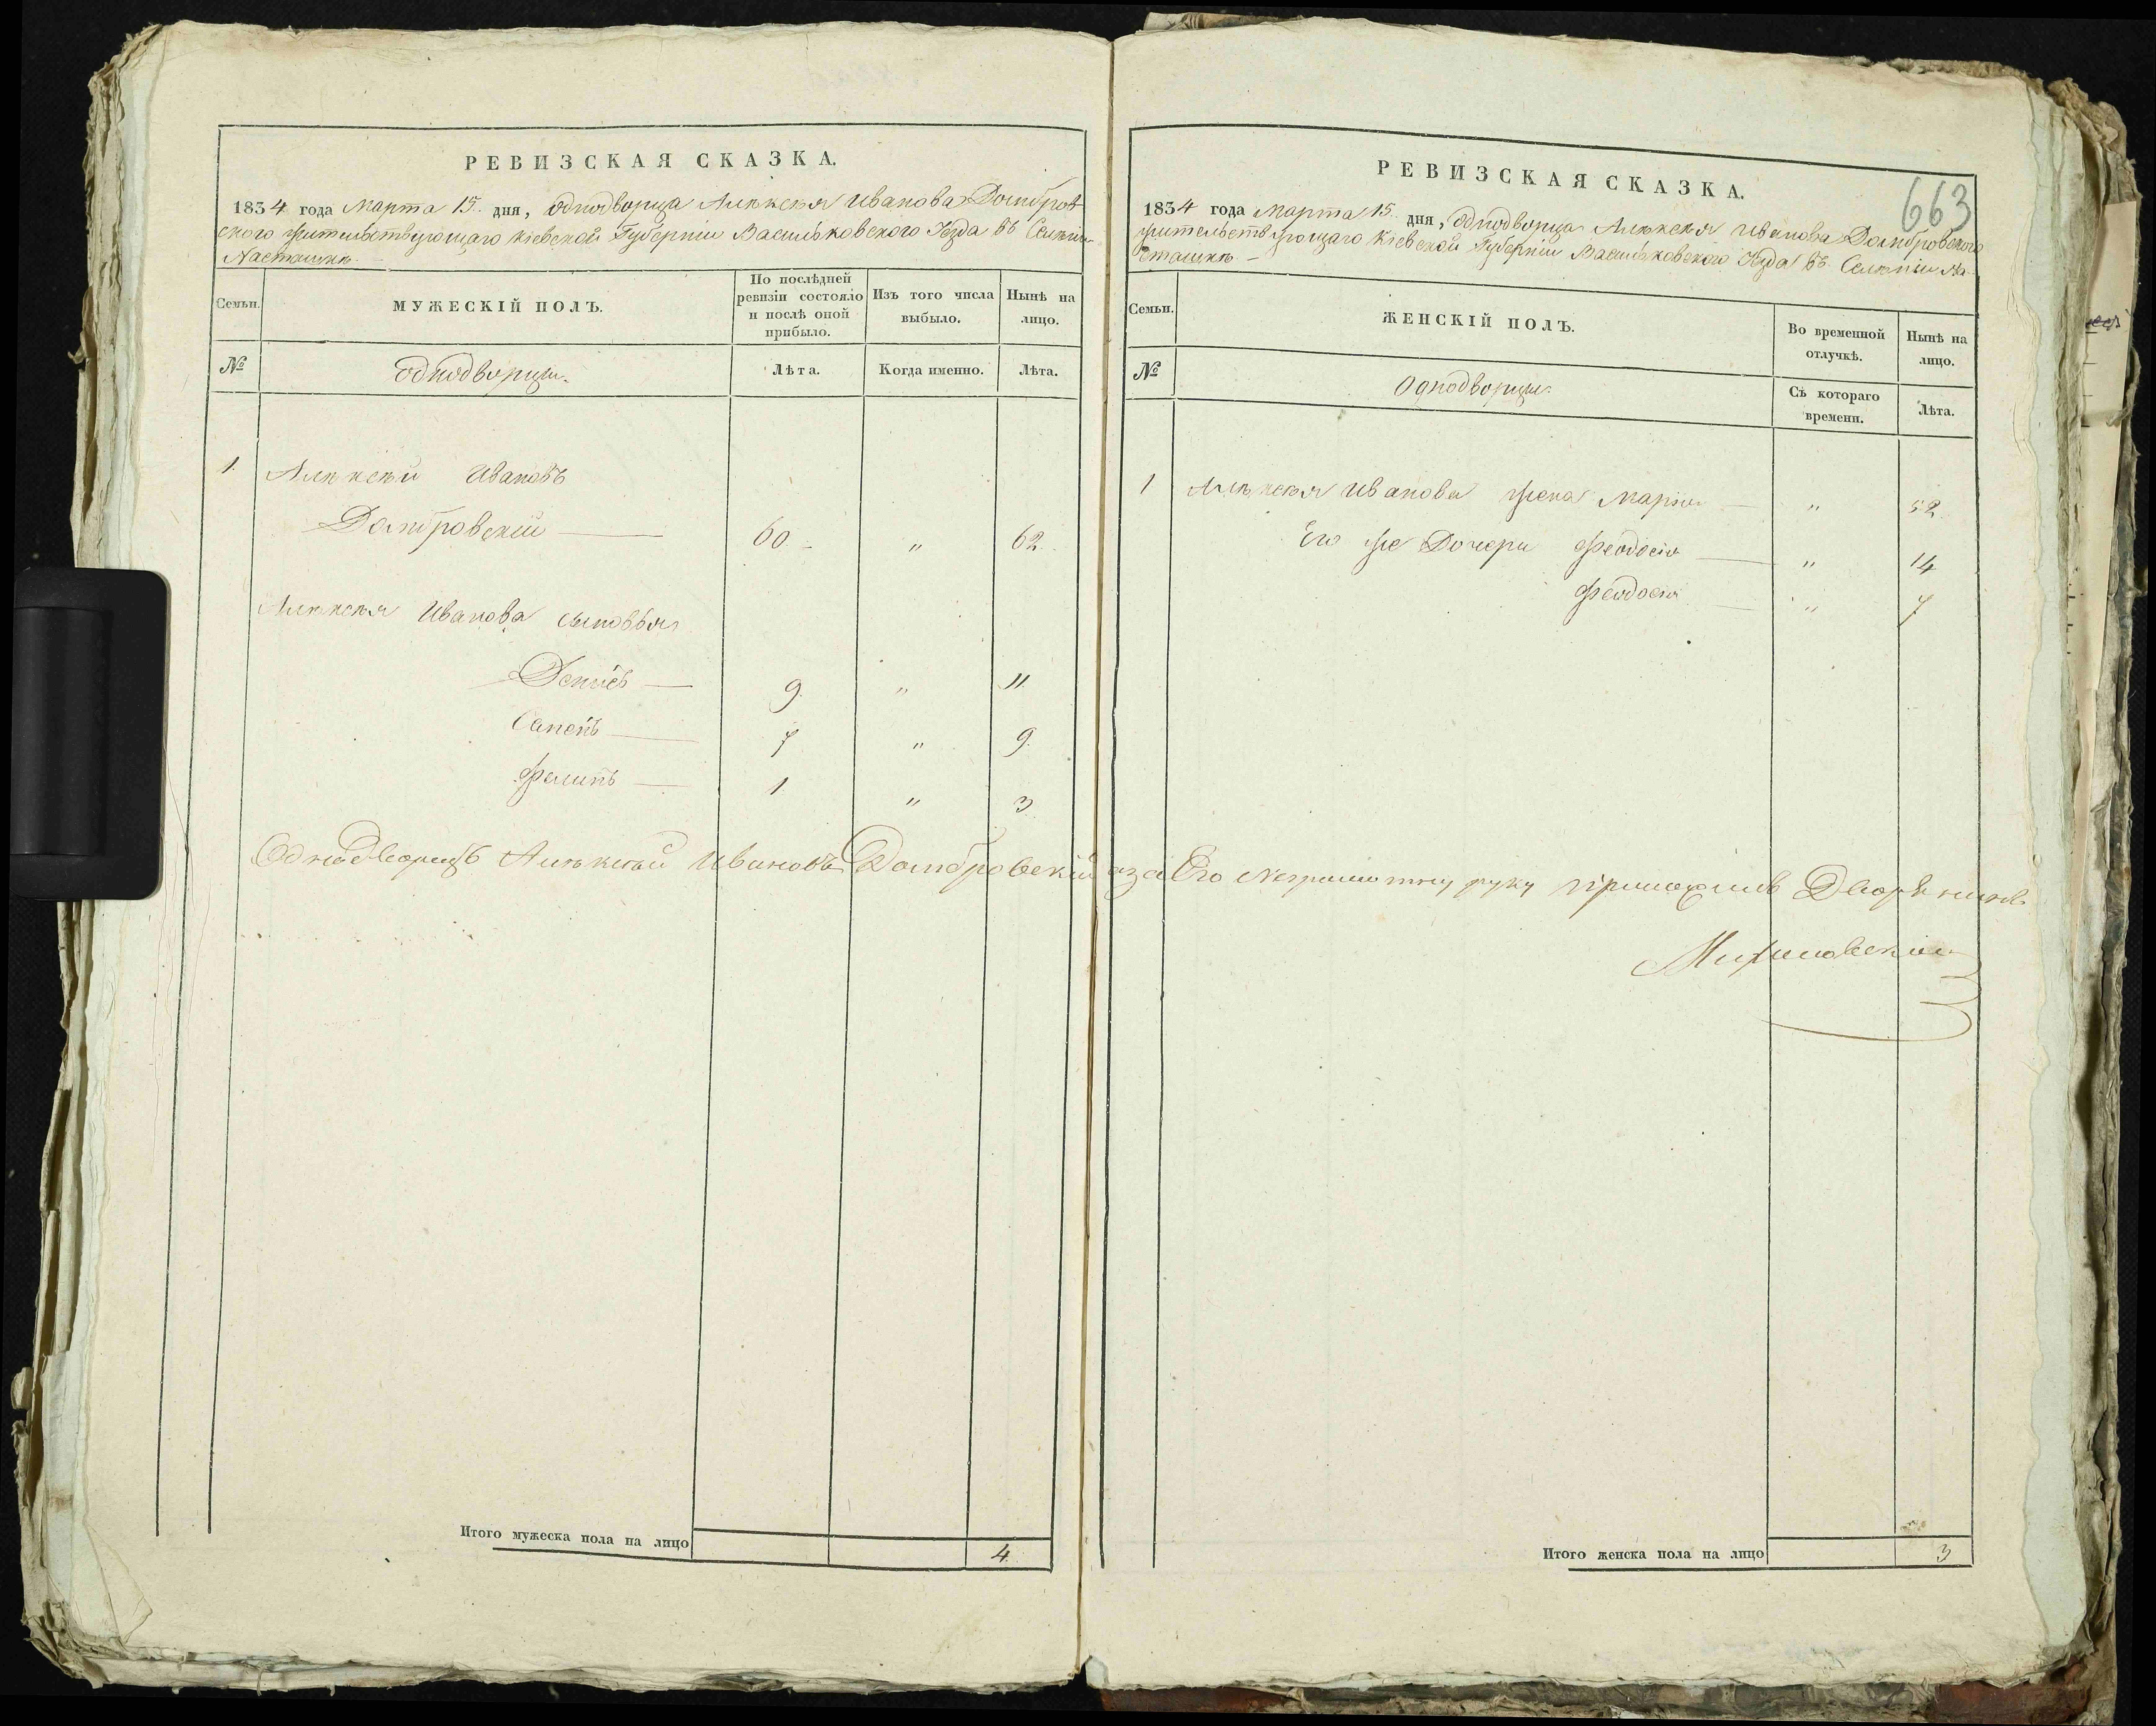 РЕВИЗСКАЯ СКАЗКА.
1834 года Марта 15. дня, однодворца Алѣксѣя Иванова Домбров
ского жительствующаго Кіевской Губерніи Васильковского Уезда въ Селѣніи
Насташкѣ
Семьи.
МУЖЕСКІЙ ПОЛЪ.
По послѣдней
ревизіи состояло
и послѣ оной
прибыло.
Изъ того числа
выбыло.
Нынѣ на
лицо.
№
однодворцы.
Лѣта.
Когда именно.
Лѣта.
1. Алѣксѣй Ивановъ
Домбровскій — 60. „ 62.
Алѣксѣя Иванова сыновья
— 9. „ 11.
— 7 „ 9.
— 1 „ 3.
Однодворецъ Алѣксѣй Ивановъ Домбровскій аза
Итого мужеска пола на лицо 4.
РЕВИЗСКАЯ СКАЗКА.
663
1834 года Марта 15. дня, Однодворца Алѣксѣя Иванова Домбровского
жительствующаго Кіевской Губерніи Васильковского Уезда въ Селѣніи На-
сташкѣ —
Семьи.
ЖЕНСКІЙ ПОЛЪ.
Во временной
отлучкѣ.
Нынѣ на
лицо.
№
Однодворцы
Съ котораго
времени.
Лѣта.
1 Алѣксѣя Иванова жена Марія — „ 52.
Его же Дочери Феодосія — „ 14
Феодосія — „ 7
Его неграмотну руку приложилъ Дворянинъ
Итого женска пола на лицо 3